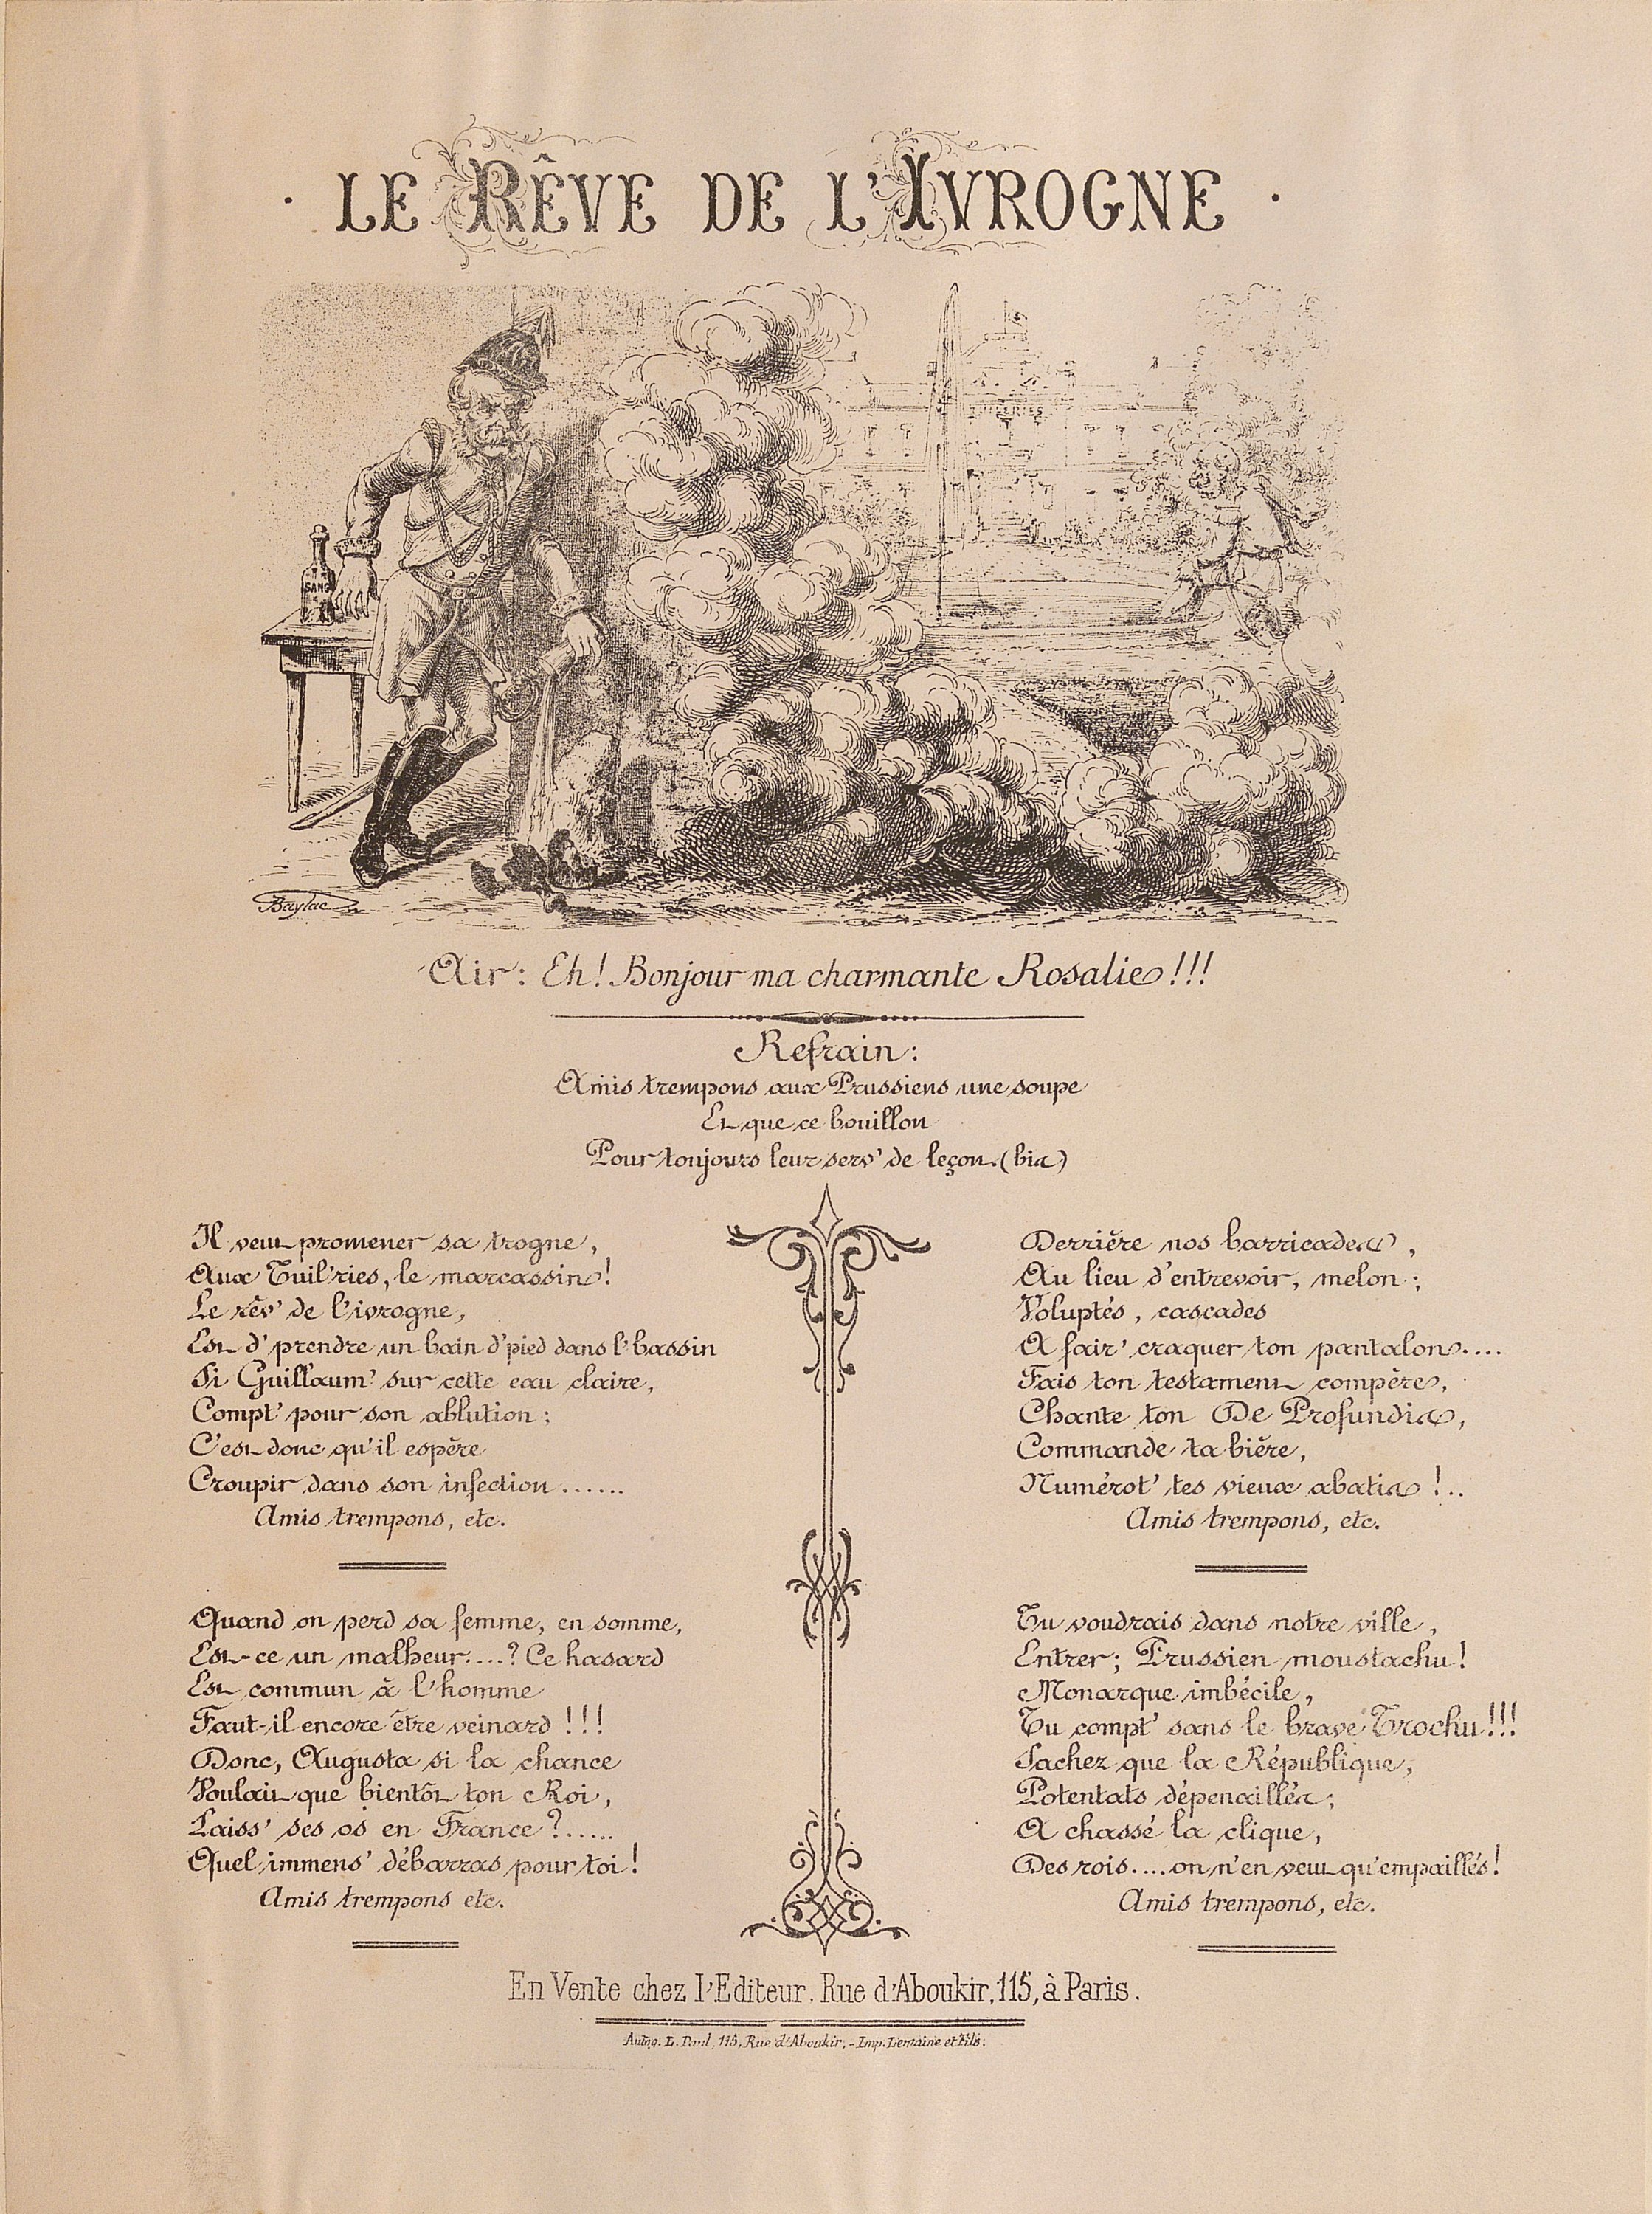 · LE RÊVE DE L'IVROGNE ·
SANG
TUILERIES
Baylac
Air: Eh! Bonjour ma charmante Rosalie!!!
Refrain:
Amis trempons aux Prussiens une soupe
Et que ce bouillon
Pour toujours leur serv' de leçon. (bis)
Il veut promener sa trogne,
Aux Tuil'ries, le marcassin!
Le rêv' de l'ivrogne,
Est d'prendre un bain d'pied dans l'bassin
Si Guillaum' sur cette eau claire,
Compt' pour son ablution;
C'est donc qu'il espère
Croupir dans son infection......
Amis trempons, etc.
Quand on perd sa femme, en somme,
Est-ce un malheur....? Ce hasard
Est commun à l'homme
Faut-il encore être veinard!!!
Donc, Augusta si la chance
Voulait que bientôt ton Roi,
Laiss' ses os en France?.....
Quel immens' débarras pour toi!
Amis trempons etc.
Derrière nos barricades,
Au lieu d'entrevoir, melon;
Voluptés, cascades
A fair' craquer ton pantalon....
Fais ton testament compère,
Chante ton De Profundis,
Commande ta bière,
Numérot' tes vieux abatis!..
Amis trempons, etc.
Tu voudrais dans notre ville,
Entrer; Prussien moustachu!
Monarque imbécile,
Tu compt' sans le brave Trochu!!!
Sachez que la République,
Potentats dépenaillés;
A chassé la clique,
Des rois....on n'en veut qu'empaillés!
Amis trempons, etc.
En Vente chez l'Editeur. Rue d'Aboukir, 115, à Paris.
Autog. L. Paul, 115, Rue d'Aboukir.-Imp. Lemaine et Fils.